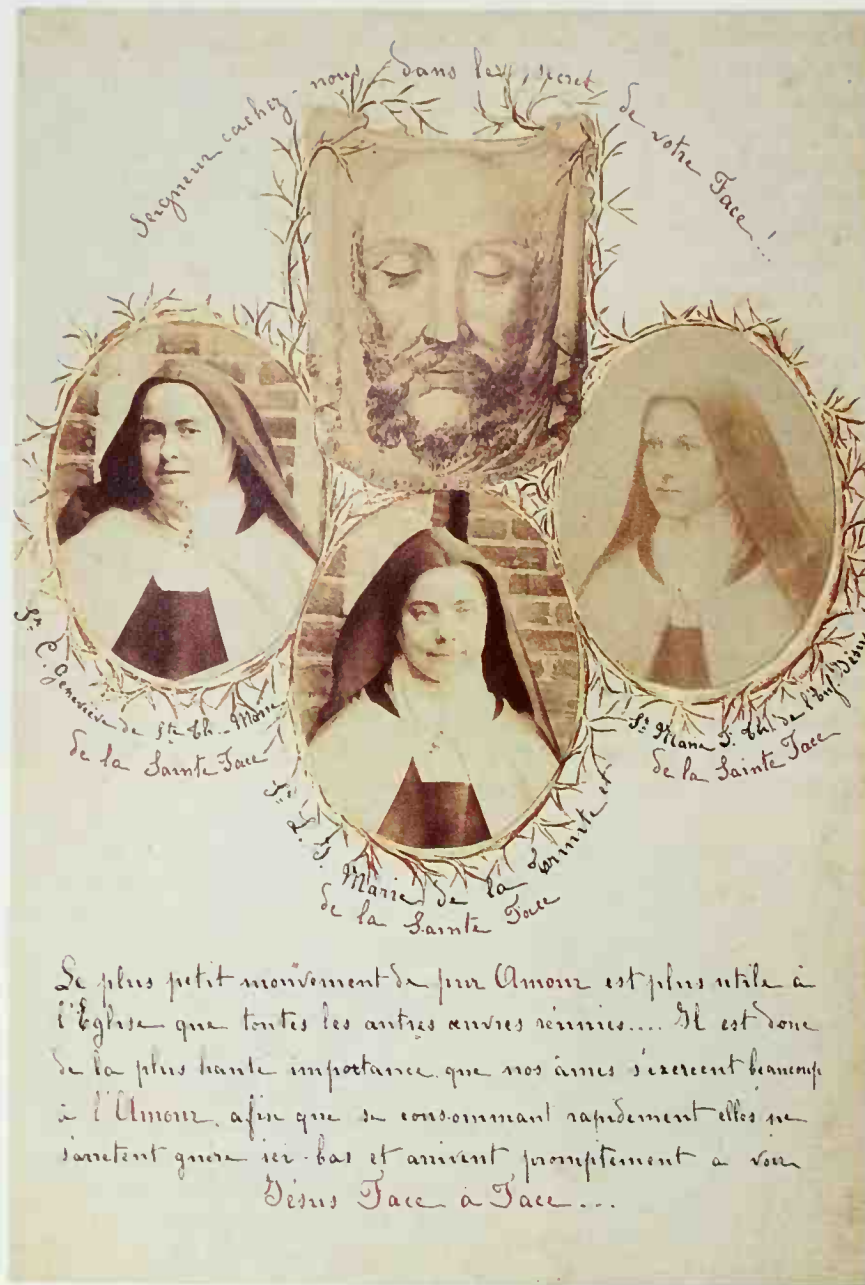 Seigneur cachez-nous dans le secret de votre Face!...
Sr. C. Geneviève de Ste Th. Marie
de la Sainte Face
Sr. L. J. Marie de la Trinité et
de la Sainte Face
Sr. Marie F. Th. de l'Enft Jésus
de la Sainte Face
Le plus petit mouvement de pur Amour est plus utile à
l'Eglise que toutes les autres œuvres réunies.... Il est donc
de la plus haute importance que nos âmes s'exercent beaucoup
à l'Amour, afin que se consommant rapidement elles ne
s'arretent guère ici-bas et arrivent promptement à voir
Jésus Face à Face...